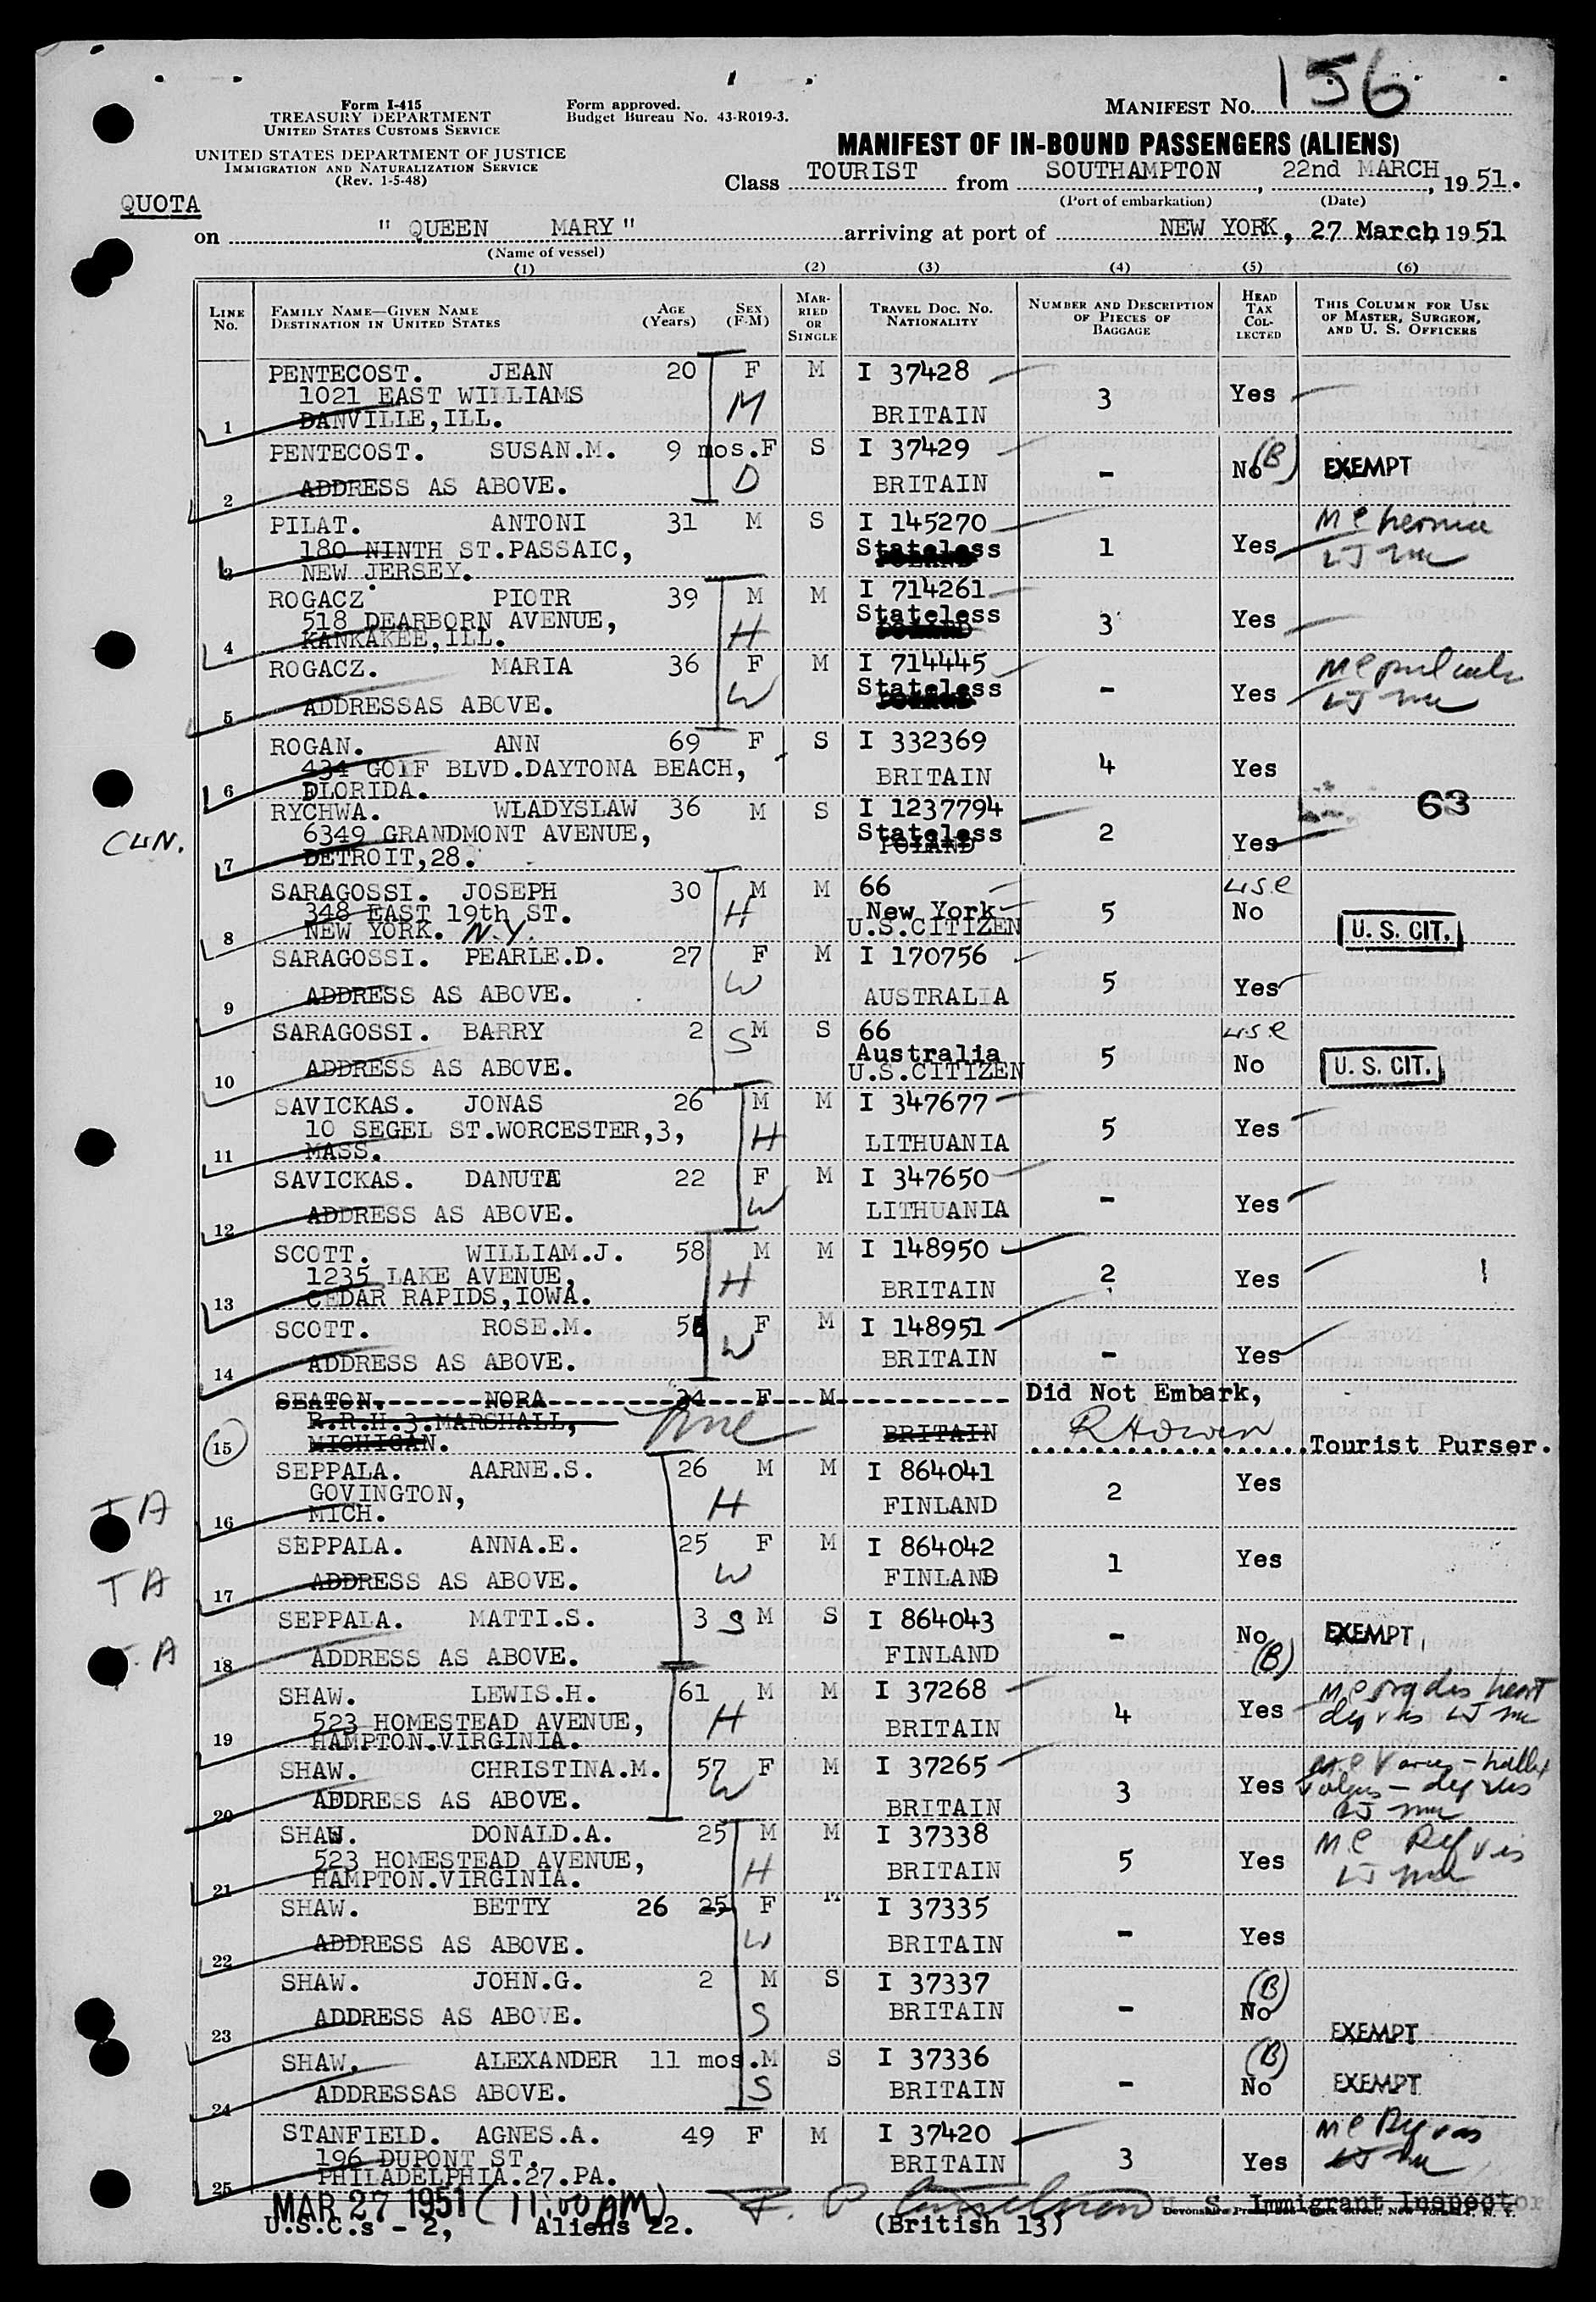 156
Form I-415
TREASURY DEPARTMENT
UNITED STATES CUSTOMS SERVICE
Form approved.
Budget Bureau No. 43-R019-3.
MANIFEST NO. 
UNITED STATES DEPARTMENT OF JUSTICE
IMMIGRATION AND NATURALIZATION SERVICE
(Rev. 1-5-48)
MANIFEST OF IN-BOUND PASSENGERS (ALIENS)
Class TOURIST from SOUTHAMPTON, 22nd MARCH, 1951.
(Port of embarkation) (Date)
QUOTA
on " QUEEN MARY" arriving at port of NEW YORK, 27 March, 1951
(Name of vessel)
(1) (2) (3) (4) (5) (6)
LINE No. FAMILY NAME—GIVEN NAME DESTINATION IN UNITED STATES AGE (Years) SEX (F-M) MARRIED OR SINGLE TRAVEL DOC. NO. NATIONALITY NUMBER AND DESCRIPTION OF PIECES OF BAGGAGE HEAD TAX COLLECTED THIS COLUMN FOR USE OF MASTER, SURGEON, AND U. S. OFFICERS
PENTECOST. JEAN 20 F M I 37428
1021 EAST WILLIAMS M 3 Yes
1 DANVILLE,ILL. BRITAIN
PENTECOST. SUSAN.M. 9 mos.F S I 37429
- No (B) EXEMPT
2 ADDRESS AS ABOVE. D BRITAIN
PILAT. ANTONI 31 M S I 145270 MC hernia
180 NINTH ST.PASSAIC, Stateless 1 Yes
3 NEW JERSEY. POLAND
ROGACZ PIOTR 39 M M I 714261
518 DEARBORN AVENUE, H Stateless 3 Yes
4 KANKAKEE,ILL. POLAND
ROGACZ. MARIA 36 F M I 714445 MC
Stateless - Yes
5 ADDRESSAS ABOVE. W POLAND
ROGAN. ANN 69 F S I 332369
434 GOIF BLVD.DAYTONA BEACH, BRITAIN 4 Yes
6 FLORIDA.
RYCHWA. WLADYSLAW 36 M S I 1237794 63
CUN. 6349 GRANDMONT AVENUE, Stateless 2 Yes
7 DETROIT,28. POLAND
SARAGOSSI. JOSEPH 30 M M 66 USC
348 EAST 19th ST. H New York 5 No
8 NEW YORK. N.Y. U.S.CITIZEN U. S. CIT.
SARAGOSSI. PEARLE.D. 27 F M I 170756
9 ADDRESS AS ABOVE. W AUSTRALIA 5 Yes
SARAGOSSI. BARRY 2 S M S 66 USC
Australia 5
10 ADDRESS AS ABOVE. U.S.CITIZEN No U. S. CIT.
SAVICKAS. JONAS 26 M M I 347677
10 SEGEL ST.WORCESTER,3, H 5 Yes
11 MASS. LITHUANIA
SAVICKAS. DANUTE 22 F M I 347650
12 ADDRESS AS ABOVE. W LITHUANIA - Yes
SCOTT. WILLIAM.J. 58 M M I 148950
1235 LAKE AVENUE, H BRITAIN 2 Yes
13 CEDAR RAPIDS,IOWA.
SCOTT. ROSE.M. F M I 148951
14 ADDRESS AS ABOVE. W BRITAIN - Yes
SEATON. NORA 34 F M Did Not Embark,
R.R.H.3.MARSHALL,
15 MICHIGAN. BRITAIN Tourist Purser.
SEPPALA. AARNE.S. 26 M M I 864041
TA GOVINGTON, H FINLAND 2 Yes
16 MICH.
SEPPALA. ANNA.E. 25 F M I 864042
TA 17 ADDRESS AS ABOVE. W FINLAND 1 Yes
SEPPALA. MATTI.S. 3 S M S I 864043
18 ADDRESS AS ABOVE. FINLAND - No (B) EXEMPT
SHAW. LEWIS.H. 61 M M I 37268 heart
523 HOMESTEAD AVENUE, H BRITAIN 4 Yes
19 HAMPTON.VIRGINIA.
SHAW. CHRISTINA.M. 57 F M I 37265
20 ADDRESS AS ABOVE. W BRITAIN 3 Yes
SHAW. DONALD.A. 25 M M I 37338 MC Def vis
523 HOMESTEAD AVENUE, H BRITAIN 5 Yes
21 HAMPTON.VIRGINIA.
SHAW. BETTY 26 25 F M I 37335
22 ADDRESS AS ABOVE. W BRITAIN - Yes
SHAW. JOHN.G. 2 M S I 37337 (B)
23 ADDRESS AS ABOVE. S BRITAIN - No EXEMPT
SHAW. ALEXANDER 11 mos.M S I 37336 (B)
24 ADDRESSAS ABOVE. S BRITAIN - No EXEMPT
STANFIELD. AGNES.A. 49 F M I 37420 MC Def vis
196 DUPONT ST. BRITAIN 3 Yes
25 PHILADELPHIA.27.PA.
MAR 27 1951 (11:00 AM) S. Immigrant Inspector
U.S.C.s - 2, Aliens 22. (British 13)